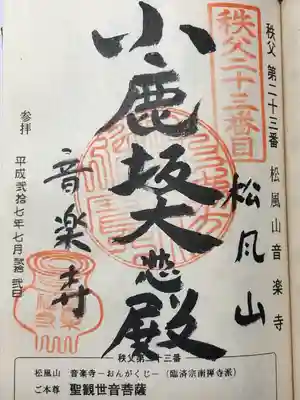 秩父第二十三番 松風山音楽寺
秩父二十三番目
松風山
小鹿坂大悲殿
音楽寺
参拝
平成弐拾七年七月弐拾弐日
秩父第二十三番
松風山 音楽寺-おんがくじ-(臨済宗南禅寺派)
ご本尊 聖観世音菩薩